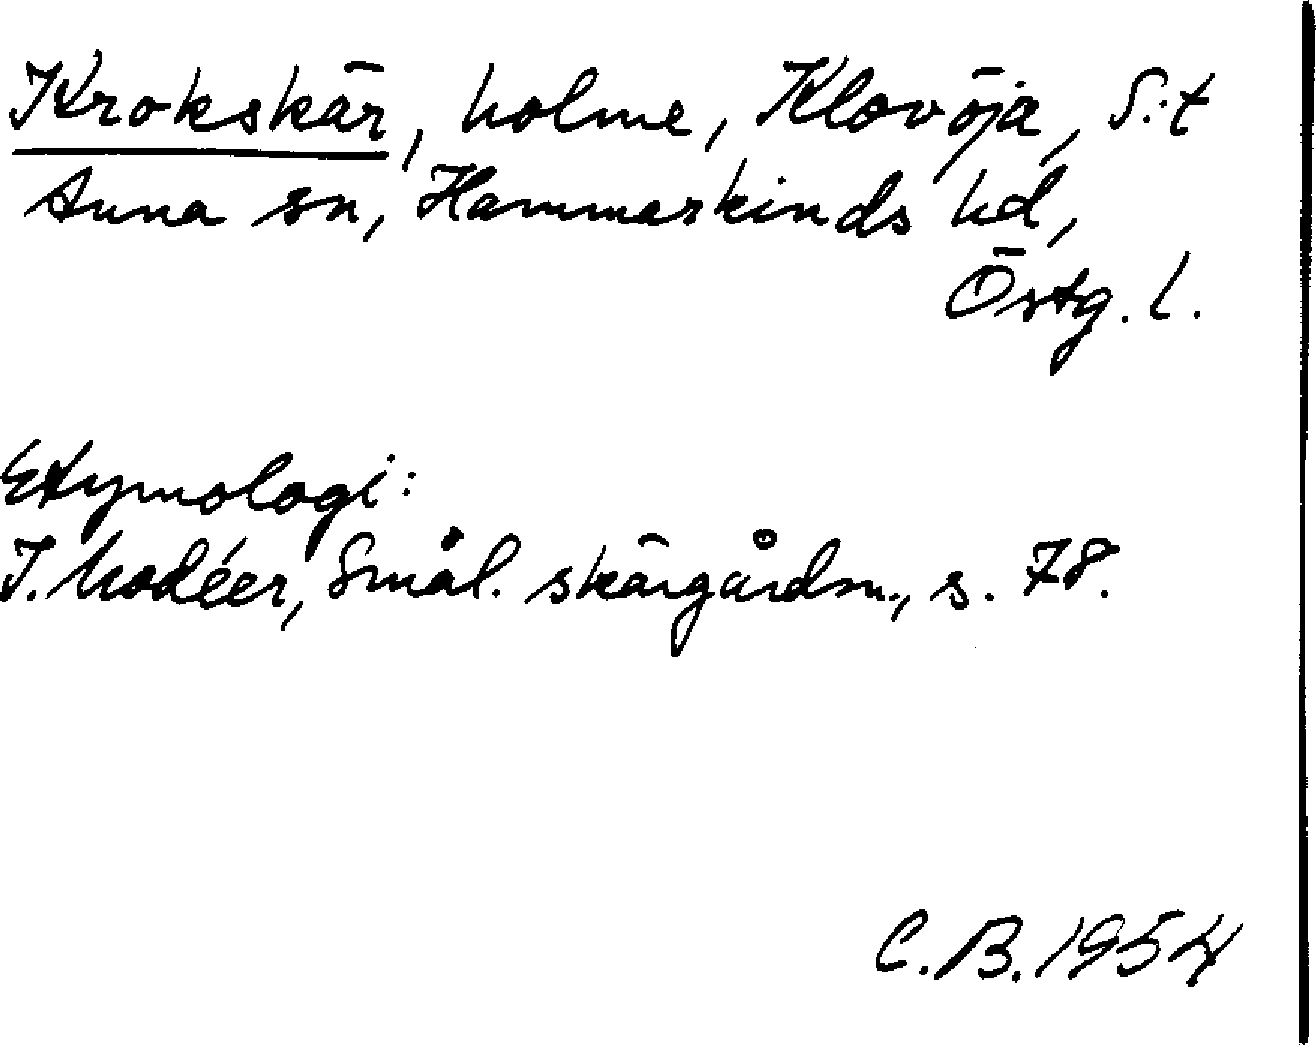 Krokskär, holme, Klovöja, S:t
Anna sn, Hammarkinds hd,
Östg. l.
Etymologi:
I. Modéer, Smål. skärgårdsn., s. 78.
C.B. 1954